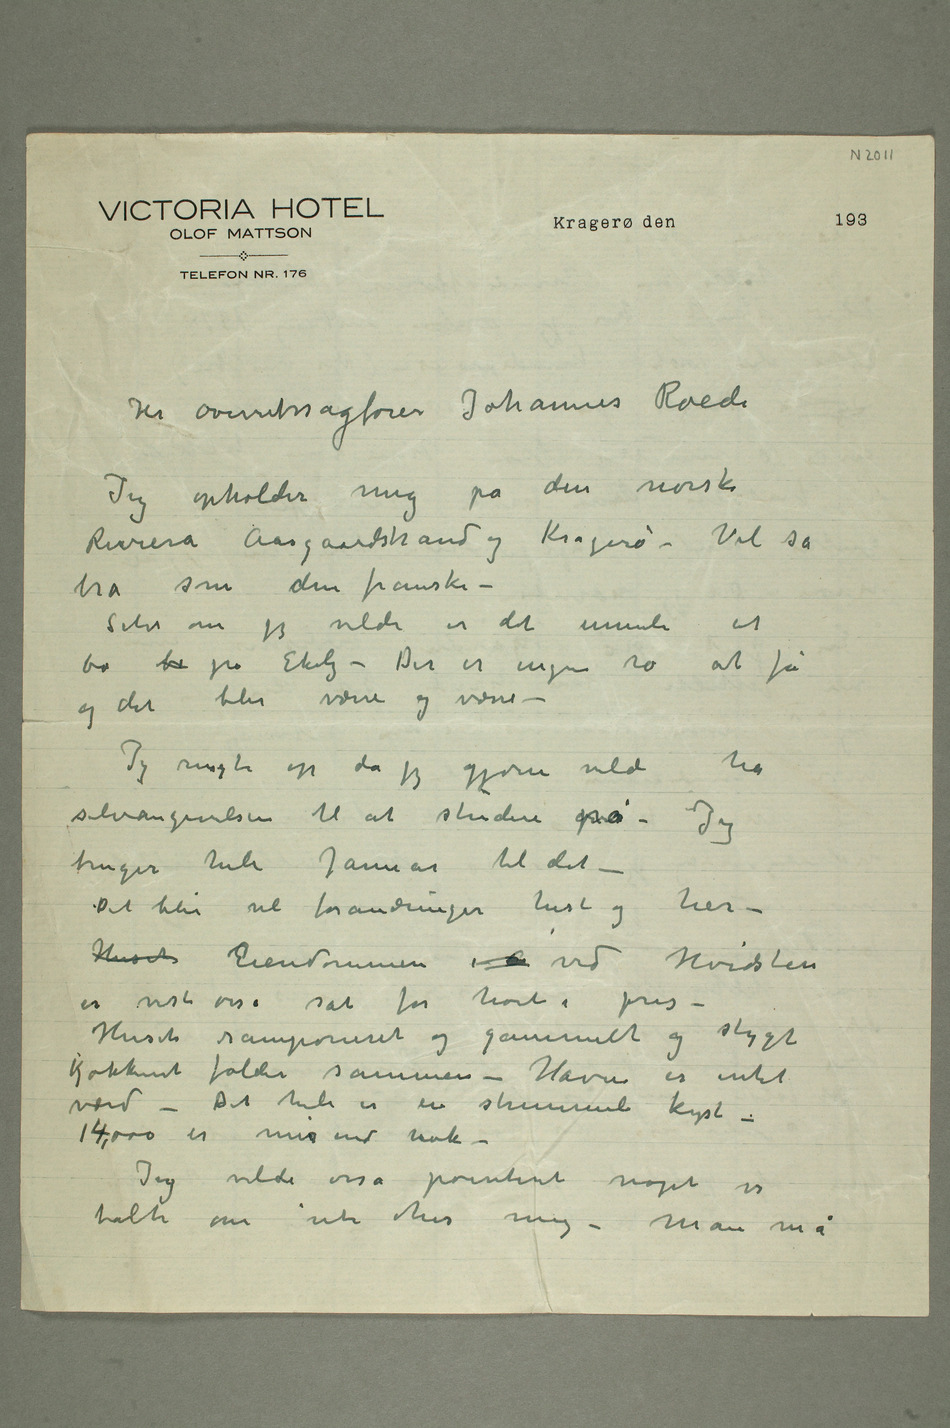 N 2011
VICTORIA HOTEL
OLOF MATTSON
TELEFON NR. 176
Kragerø den 193
Hr overretssagfører Johannes Roede
Jeg opholder mig på den norske
Riviera Aasgaardstrand og Kragerø – Vel så
bra som den franske –
Selv om jeg vilde er det umule at
bo på Ekely – Der er ingen ro at få
og det blir værre og værre –
Jeg ringte op da jeg gjerne vilde ha
selvangivelsen til at studere på – Jeg
trenger hele Januar til det –
Det blir vel forandringer hist og her –
Huset Eiendommen ved Hvidsten
er vist osså sat for høit i pris –
Huset ramponeret og gammelt og stygt
Kjøkkenet falder sammen – Haven er intet
værd – Det hele er en strimmel kyst –
14,000 er mer end nok –
Jeg vilde osså pointeret noget vi
talte om ute hos mig – Man må